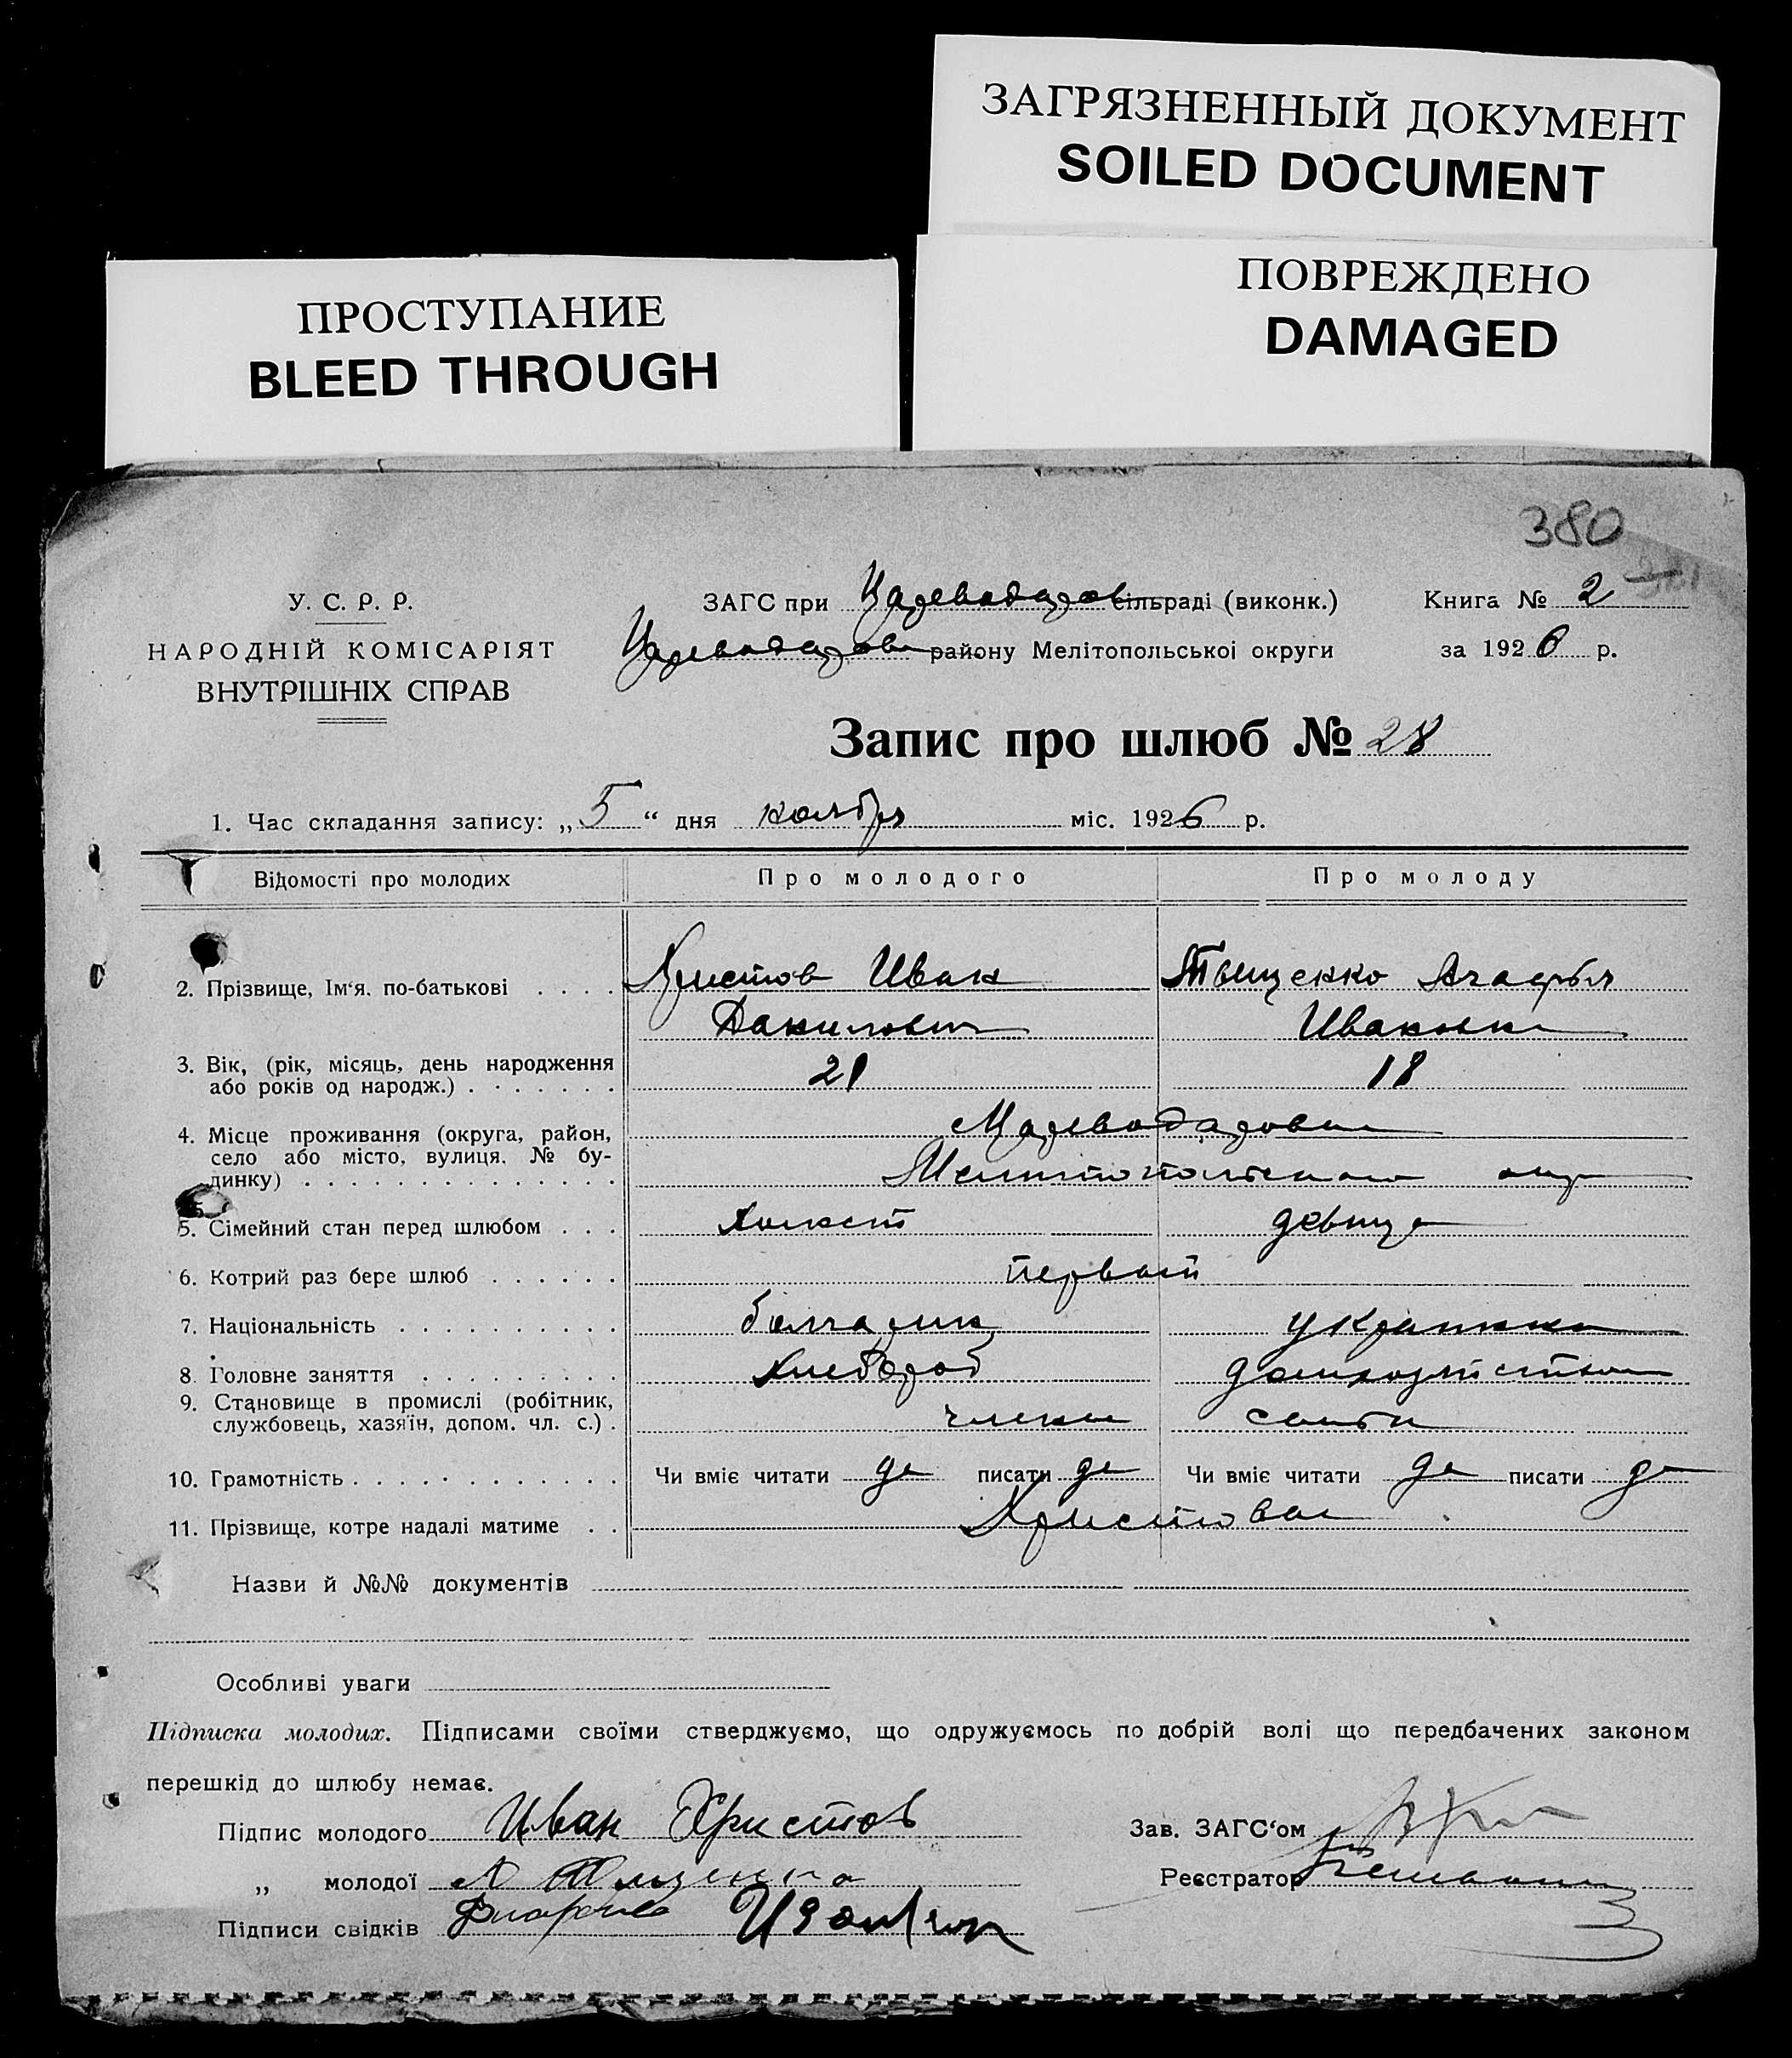 ЗАГРЯЗНЕННЫЙ ДОКУМЕНТ
SOILED DOCUMENT
ПОВРЕЖДЕНО
DAMAGED
ПРОСТУПАНИЕ
BLEED THROUGH
380
У. С. Р. Р.
НАРОДНІЙ КОМІСАРІЯТ
ВНУТРІШНІХ СПРАВ
ЗАГС при Цареводаров сільраді (виконк.)
Книга № 2
Цареводаров району Мелітопольської округи
за 1926 р.
Запис про шлюб № 28
1. Час складання запису: „5“ дня ноября міс. 1926 р.
Відомості про молодих Про молодого Про молоду
2. Прізвище, Ім'я, по-батькові . . . . Христов Иван Тыщенко Агафья
Данилович Ивановна
3. Вік, (рік, місяць, день народження
або років од народж.) . . . . . . . 21 18
4. Місце проживання (округа, район,
село або місто, вулиця, № бу-
динку) . . . . . . . . . . . . . .
Цареводаровка
Мелитопольского окр
5. Сімейний стан перед шлюбом . . . холост девица
6. Котрий раз бере шлюб . . . . . . первый
7. Національність . . . . . . . . . . болгарин украинка
8. Головне заняття . . . . . . . . . хлебороб домхозяйством
9. Становище в промислі (робітник,
службовець, хазяїн, допом. чл. с.) . члены семьи
10. Грамотність . . . . . . . . . . . . Чи вміє читати да писати да Чи вміє читати да писати да
11. Прізвище, котре надалі матиме . . Христовы
Назви й №№ документів
Особливі уваги
Підписка молодих. Підписами своїми стверджуємо, що одружуємось по добрій волі що передбачених законом
перешкід до шлюбу немає.
Підпис молодого Иван Христов
Зав. ЗАГС'ом
„ молодої А Тыщенко
Реєстратор
Підписи свідків